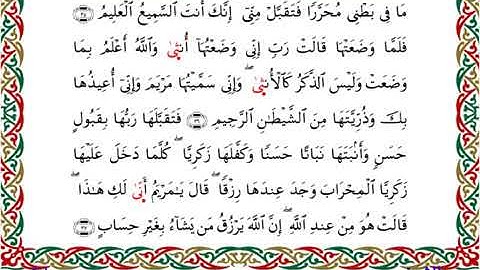 مَا فِى بَطْنِى مُحَرَّرًا فَتَقَبَّلْ مِنِّىٓ ۖ إِنَّكَ أَنتَ ٱلسَّمِيعُ ٱلْعَلِيمُ ۝٣٥
فَلَمَّا وَضَعَتْهَا قَالَتْ رَبِّ إِنِّى وَضَعْتُهَآ أُنثَىٰ وَٱللَّهُ أَعْلَمُ بِمَا
وَضَعَتْ وَلَيْسَ ٱلذَّكَرُ كَٱلْأُنثَىٰ ۖ وَإِنِّى سَمَّيْتُهَا مَرْيَمَ وَإِنِّىٓ أُعِيذُهَا
بِكَ وَذُرِّيَّتَهَا مِنَ ٱلشَّيْطَـٰنِ ٱلرَّجِيمِ ۝٣٦ فَتَقَبَّلَهَا رَبُّهَا بِقَبُولٍ
حَسَنٍ وَأَنۢبَتَهَا نَبَاتًا حَسَنًا وَكَفَّلَهَا زَكَرِيَّا ۖ كُلَّمَا دَخَلَ عَلَيْهَا
زَكَرِيَّا ٱلْمِحْرَابَ وَجَدَ عِندَهَا رِزْقًا ۖ قَالَ يَـٰمَرْيَمُ أَنَّىٰ لَكِ هَـٰذَا ۖ
قَالَتْ هُوَ مِنْ عِندِ ٱللَّهِ ۖ إِنَّ ٱللَّهَ يَرْزُقُ مَن يَشَآءُ بِغَيْرِ حِسَابٍ ۝٣٧